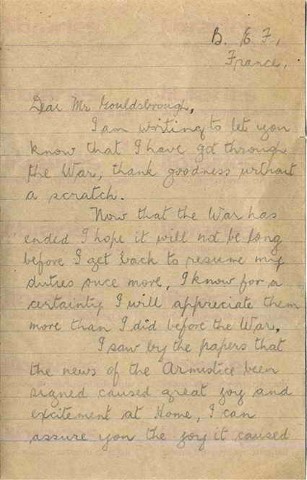 B. E. F,
France.
Dear Mr Gouldsbrough,
I am writing to let you
know that I have got through
the War, thank goodness without
a scratch.
Now that the War has
ended I hope it will not be long
before I get back to resume my
duties once more, I know for a
certainty I will appreciate them
more than I did before the War.
I saw by the papers that
the news of the Armistice been
signed caused great joy and
excitement at Home, I can
assure you the joy it caused